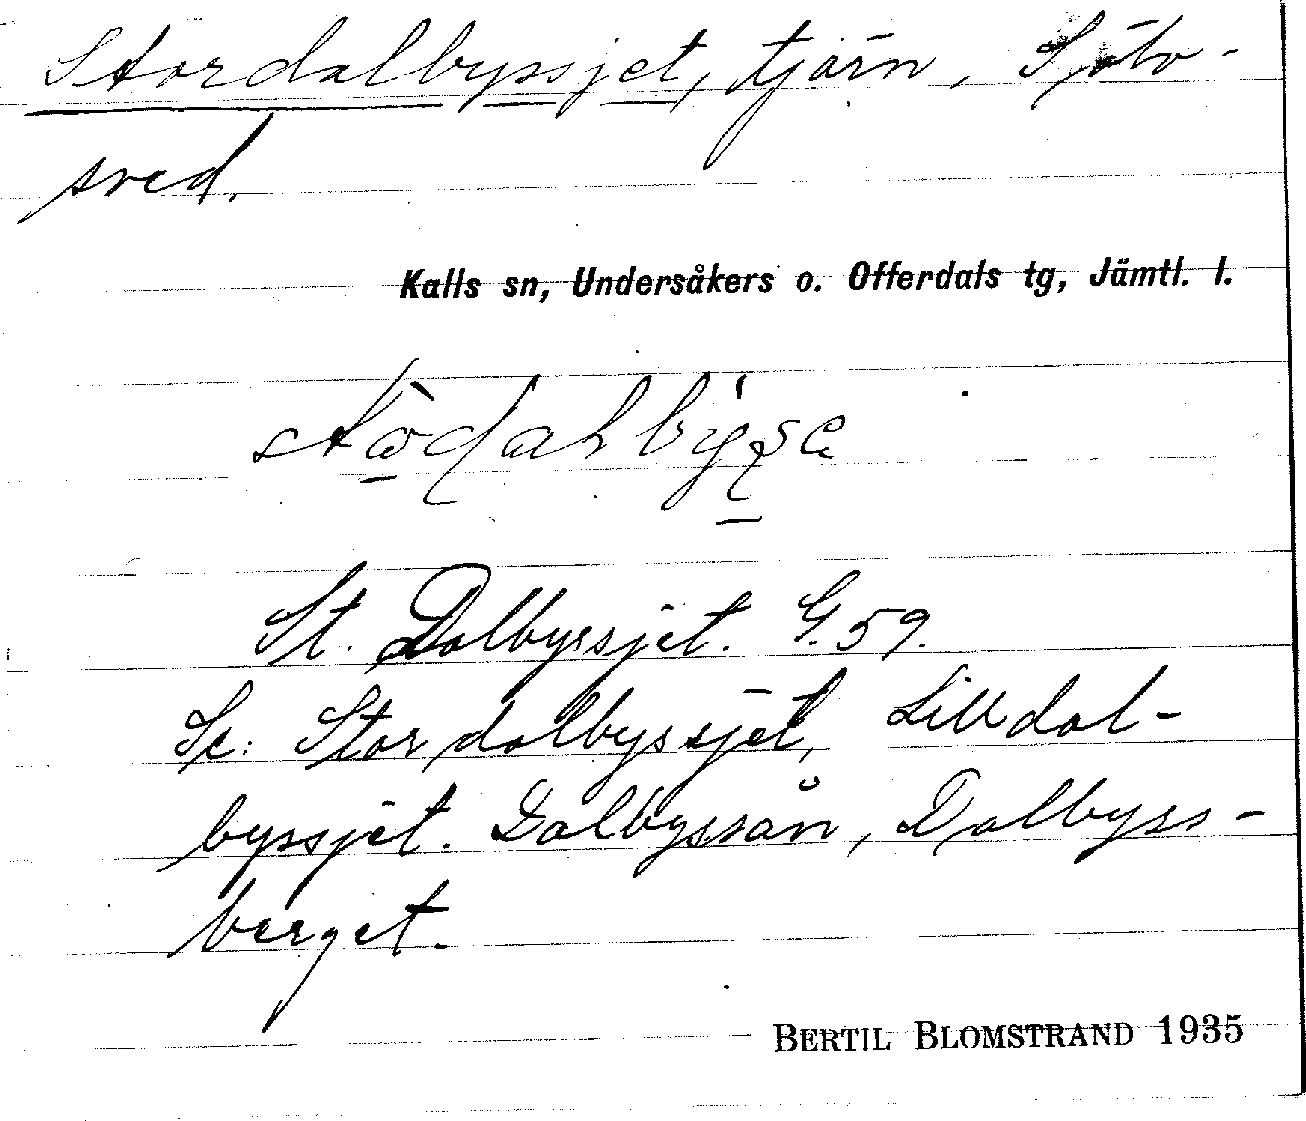 Stordalbyssjet, tjärn, Sjöto-
sved.
Kalls sn, Undersåkers o. Offerdals tg, Jämtl. l.
St. Dalbyssjet. G. 59.
Se: Stordalbyssjet, Lilldal-
byssjet. Dalbyssån, Dalbyss-
berget.
BERTIL BLOMSTRAND 1935